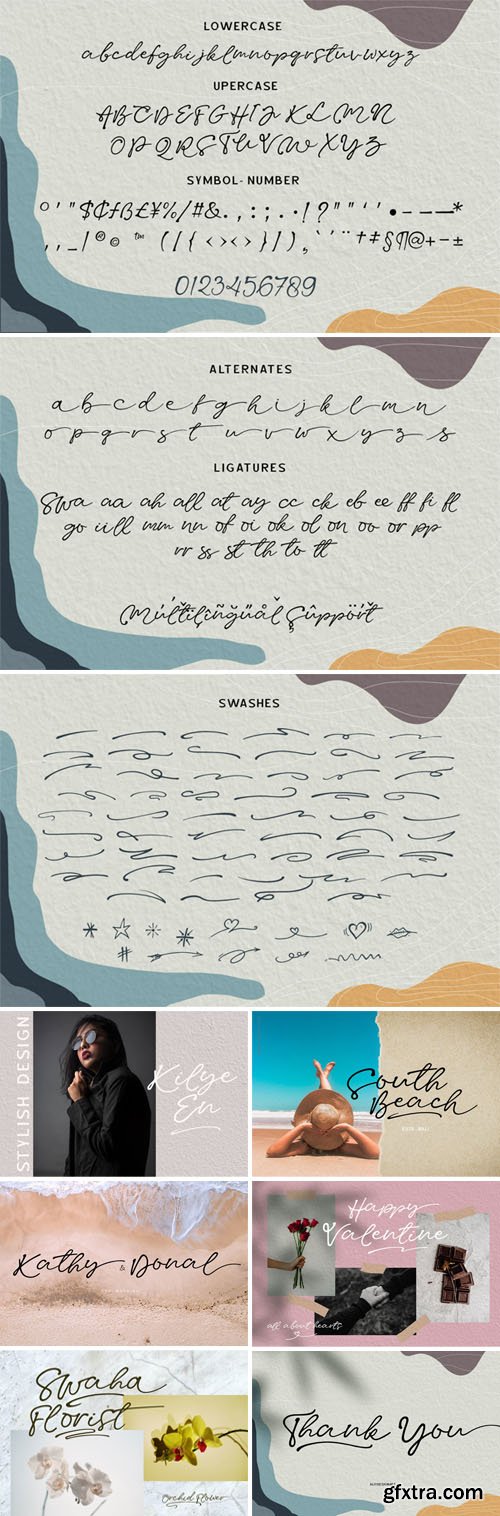 LOWERCASE
abcdefghijklmnopqrstuvwxyz
UPERCASE
ABCDEFGHIJKLMN
OPQRSTUVWXYZ
SYMBOL-NUMBER
0123456789
ALTERNATES
abcdefghijklmn
opqrstuvwxyzs
LIGATURES
Swa aa ah all at ay cc ck eb ee ff fi fl
go ii ill mm nn of oi ok ol on oo or pp
rr ss st th to tt
SWASHES
STYLISH DESIGN
Kilye
En
South
Beach
Kathy & Donal
Happy
Valentine
all about hearts
Swaha
Florist
Orchid Flower
Thank You
gfxtra.com